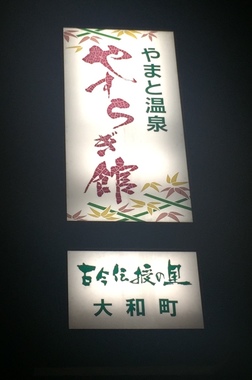 やまと温泉
やすらぎ館
古今伝授の里
大和町